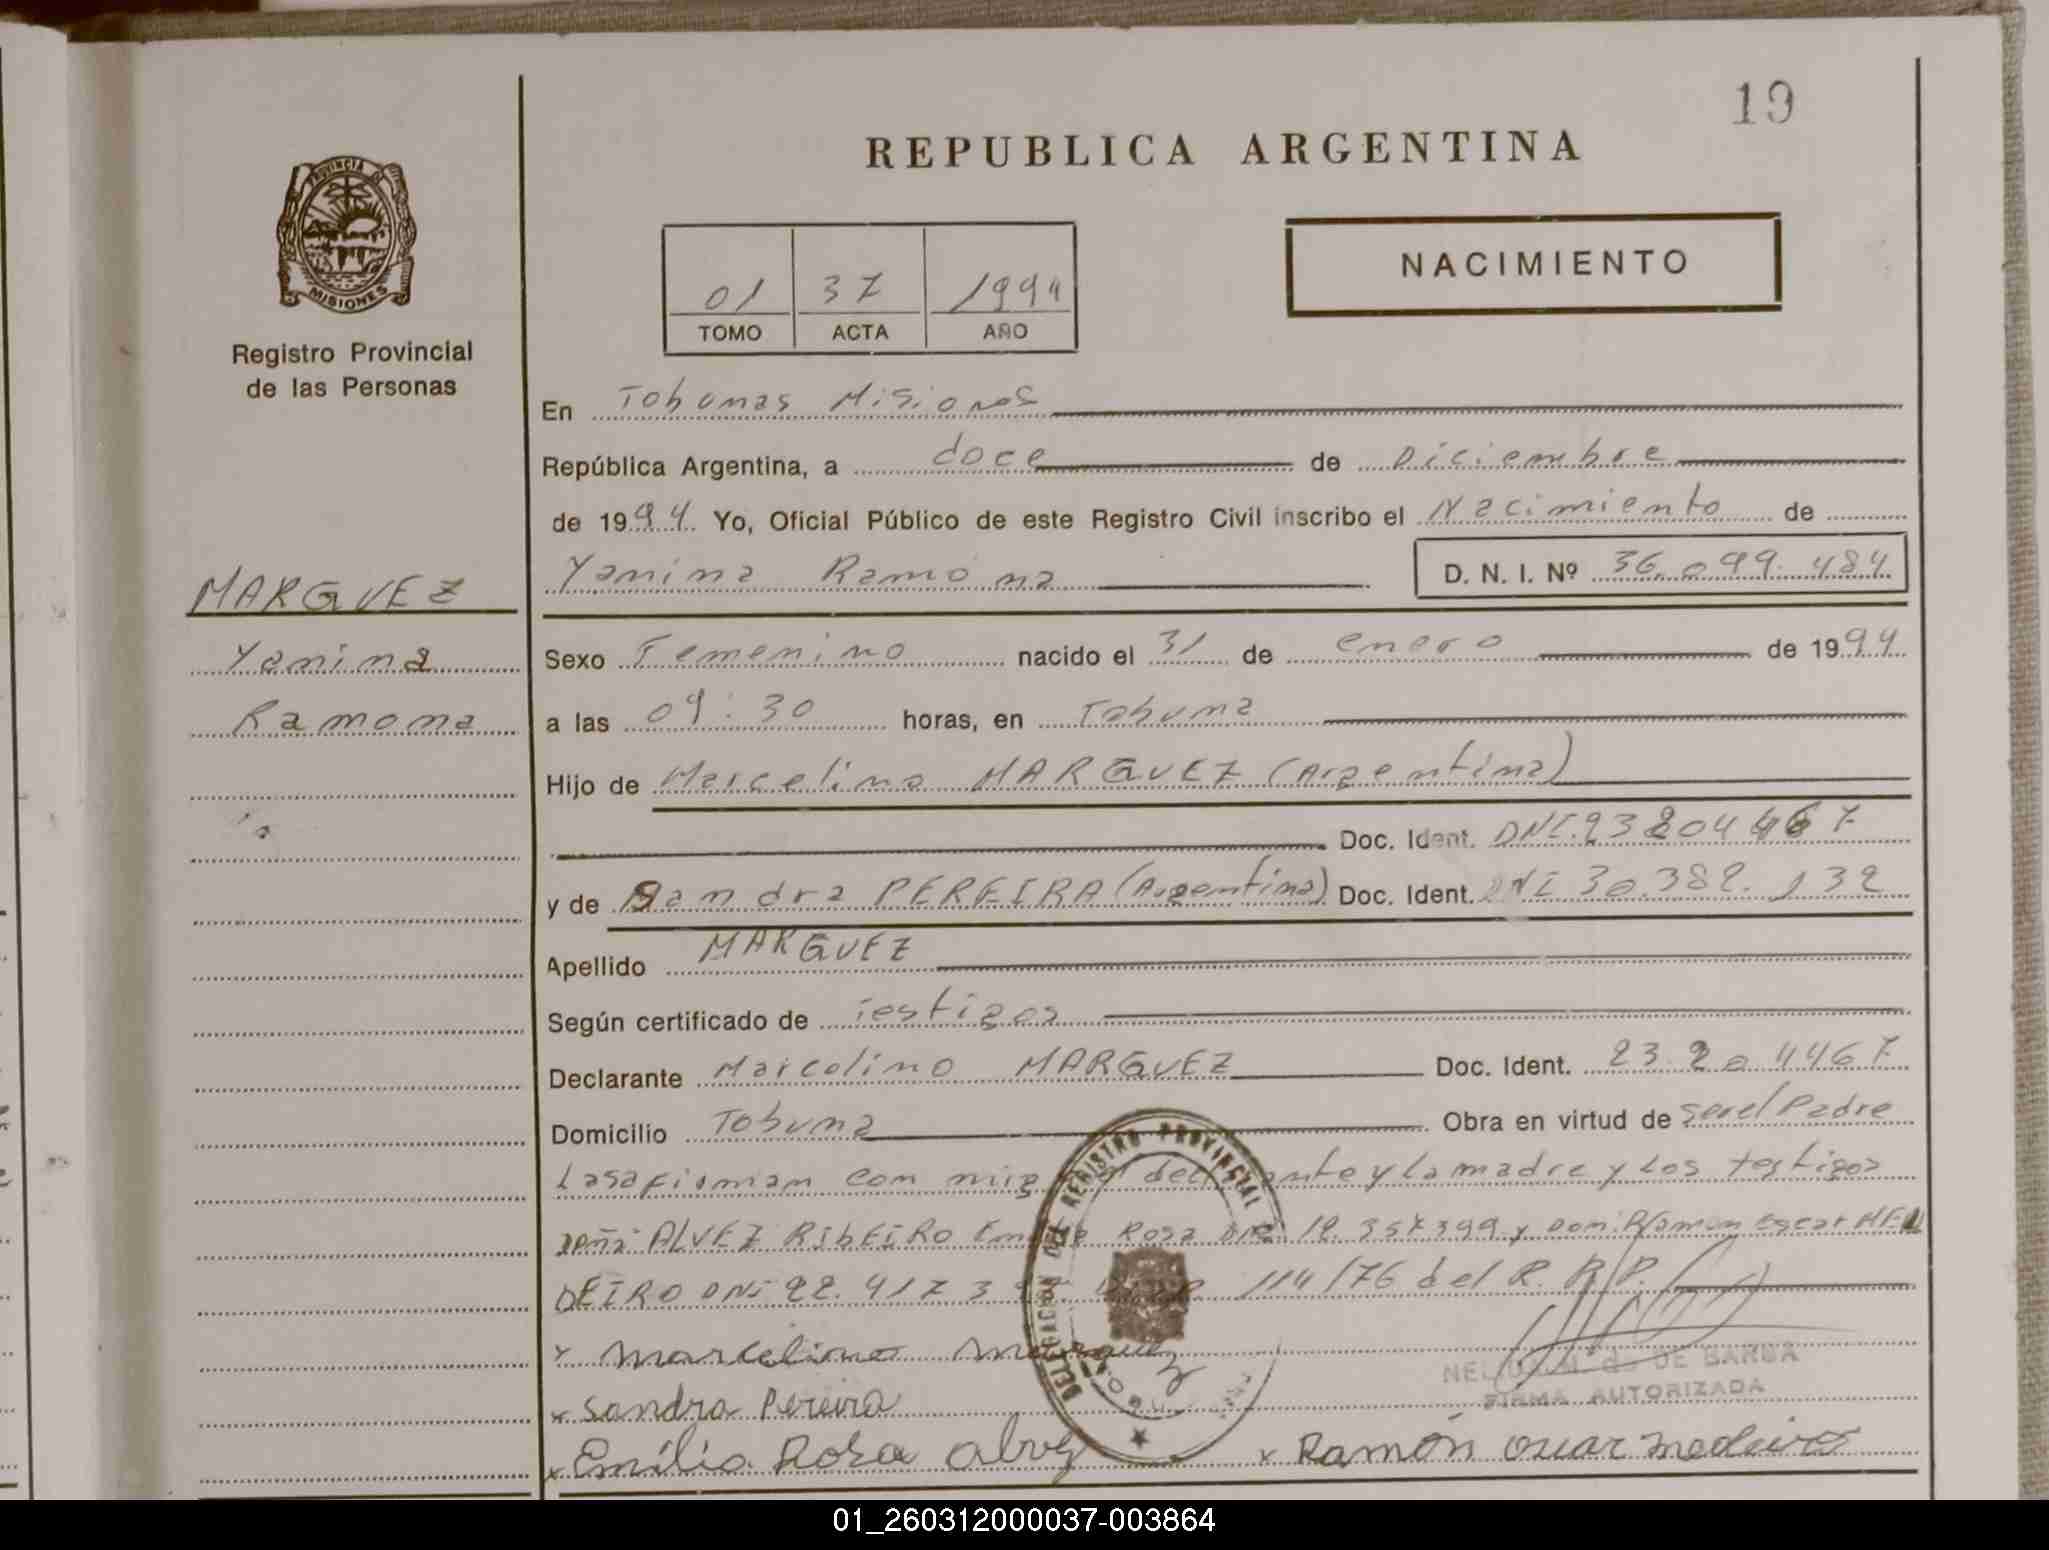 19
REPUBLICA ARGENTINA
PROVINCIA DE
MISIONES
NACIMIENTO
01 37 1994
TOMO ACTA AÑO
Registro Provincial
de las Personas
En Tobunas Misiones
República Argentina, a doce de Diciembre
de 1994. Yo, Oficial Público de este Registro Civil inscribo el Nacimiento de
Yanina Ramona D. N. I. Nº 36.099.484
MARGUEZ
Yanina
Ramona
Sexo Femenino nacido el 31 de enero de 1994
a las 09:30 horas, en Tobuna
Hijo de Marcelino MARGUEZ (Argentina)
Doc. Ident. DNI.23204467
y de Sandra PEREIRA (Argentina) Doc. Ident. DNI 30.382.132
Apellido MARGUEZ
Según certificado de testigos
Declarante Marcelino MARGUEZ Doc. Ident. 23.204467
Domicilio Tobuna Obra en virtud de ser el Padre
con mig el ante y la madre y Los testigos
doña ALVEZ RIbEIRO Rosa DNI 357399 y Don: Ramon Oscar MEN
DEIRO DNI 22.917 3 114/76 del R.R.P.
x Marcelino Marquez
NEL DE BARBA
FIRMA AUTORIZADA
x Sandra Pereira
x Emilia Rosa Alvez x Ramón Oscar Medeiro
DELEGACION DEL REGISTRO PROVINCIAL
01_260312000037-003864